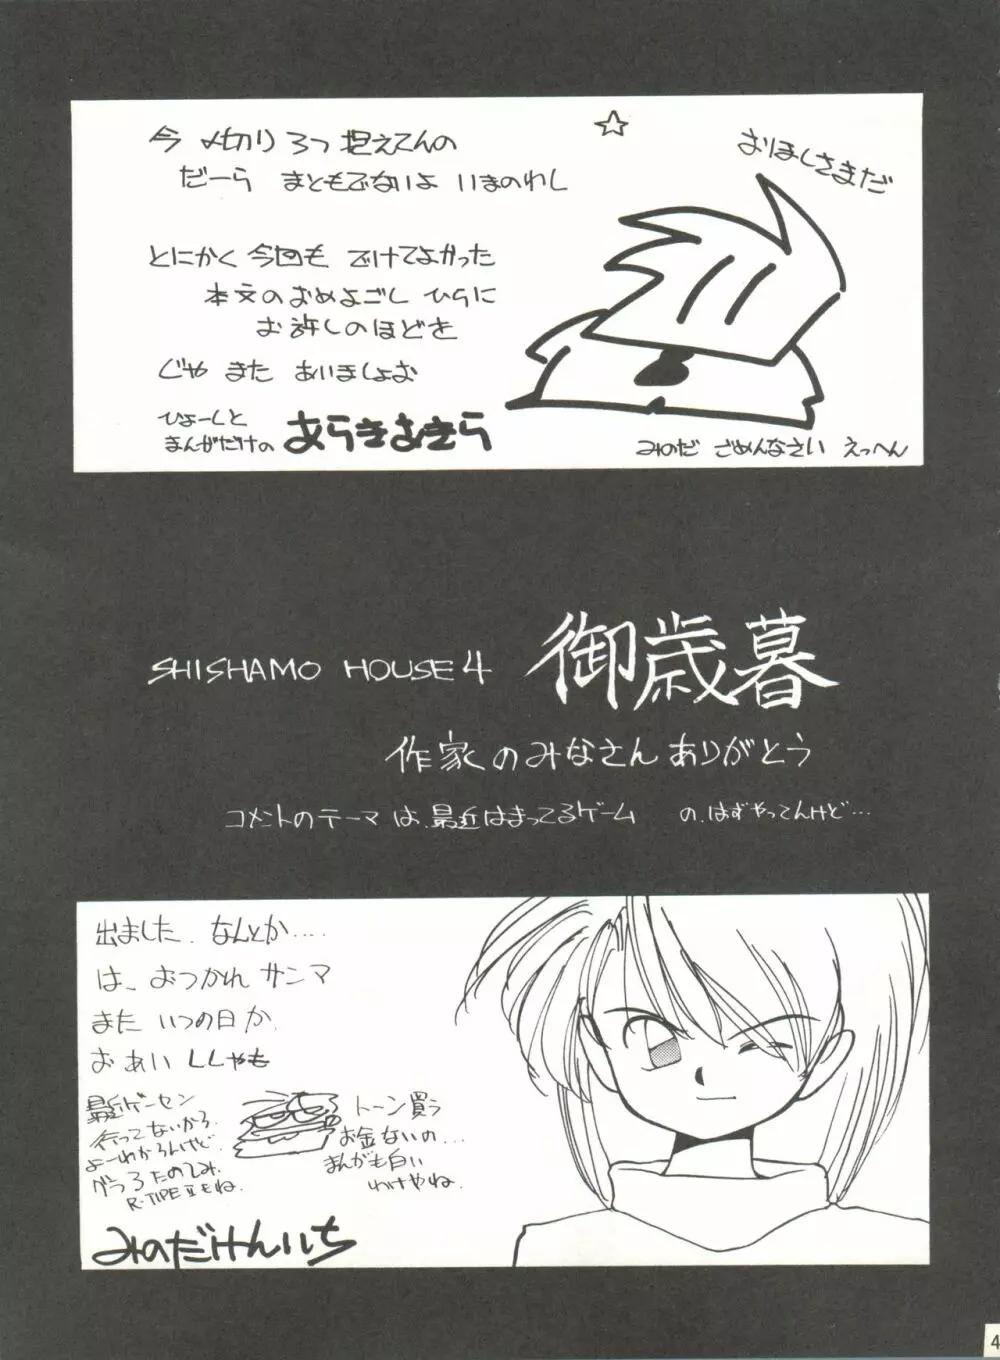 今 〆切り 3つ 抱えてんの
だーら まともでないよ いまのわし
☆
おりほしさまだ
とにかく 今回も でけてよかった
本文のおめよごし ひらに
お許しのほどを
じゃ また あいましょお
ひょーしと
まんがだけの あらきあきら
みのだ ごめんなさい えっへん
SHISHAMO HOUSE 4 御歳暮
作家のみなさんありがとう
コメントのテーマは、最近はまってるゲーム の、はずやってんけど…
出ました、なんとか.....
は、おつかれ サンマ
また いつの日か、
お あい ししゃも
最近ゲーセン
行ってないから、
よーわからんけど
グラ3たのしみ、
R-TYPEⅡもね、
トーン買う
お金ないの…
まんがも白い
わけやね、
みのだけんいち
4